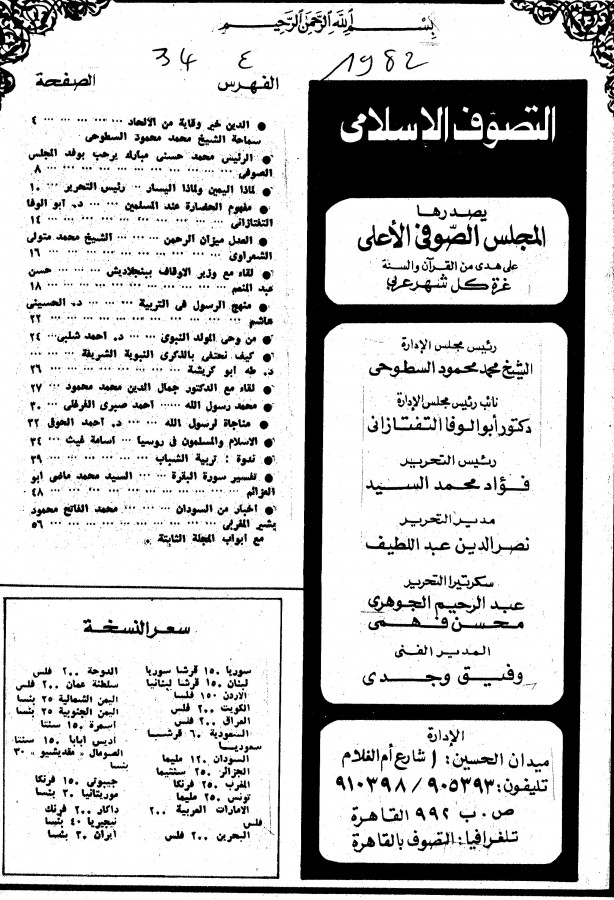 بسم الله الرحمن الرحيم
34 ٤ 1982
التصوف الاسلامى
يصدرها
المجلس الصوفى الأعلى
على هدى من القرآن والسنة
غرة كل شهر عربى
رئيس مجلس الإدارة
الشيخ محمد محمود السطوحى
نائب رئيس مجلس الإدارة
دكتور أبو الوفا التفتازانى
رئيس التحرير
فؤاد محمد السيد
مدير التحرير
نصر الدين عبد اللطيف
سكرتيرا التحرير
عبد الرحيم الجوهرى
محسن فهمى
المدير الفنى
وفيق وجدى
الإدارة
ميدان الحسين: ١ شارع أم الغلام
تليفون: ٩٠٥٣٩٣ / ٩١٠٣٩٨
ص . ب ٩٩٢ القاهرة
تلغرافيا: التصوف بالقاهرة
الفهرس الصفحة
● الدين خير وقاية من الالحاد ... ... ... ... ٤
سماحة الشيخ محمد محمود السطوحى
● الرئيس محمد حسنى مبارك يرحب بوفد المجلس
الصوفى ... ... ... ... ... ... ... ٨
● لماذا اليمين ولماذا اليسار .. رئيس التحرير ... ١٠
● مفهوم الحضارة عند المسلمين ... ... د. ابو الوفا
التفتازانى ... ... ... ... ... ... ... ١٤
● العدل ميزان الرحمن ... ... الشيخ محمد متولى
الشعراوى ... ... ... ... ... ... ... ١٦
● لقاء مع وزير الاوقاف ببنجلاديش ... ... حسن
عبد المنعم ... ... ... ... ... ... ... ١٨
● منهج الرسول فى التربية ... ... د. الحسينى
هاشم ... ... ... ... ... ... ... ... ٢٢
● من وحى المولد النبوى ... د. احمد شلبى ... ٢٤
● كيف نحتفى بالذكرى النبوية الشريفة ... ...
د. طه ابو كريشة ... ... ... ... ... ... ٢٦
● لقاء مع الدكتور جمال الدين محمد محمود ... ٢٧
● محمد رسول الله ... ... احمد صبرى الفرغلى ... ٣٠
● مناجاة لرسول الله ... ... د. احمد الحوفى ٣٢
● الاسلام والمسلمون فى روسيا ... اسامة غيث ... ٣٤
● ندوة : تربية الشباب ... ... ... ... ... ٣٩
● تفسير سورة البقرة ... ... السيد محمد ماضى ابو
العزائم ... ... ... ... ... ... ... ٤٨
● اخبار من السودان ... ... محمد الفاتح محمود
بشير المغربى ... ... ... ... ... ... ... ٥٦
مع ابواب المجلة الثابتة ●
سعر النسخة
سوريا ١٥٠ قرشا سوريا
لبنان ١٥٠ قرشا لبنانيا
الاردن ١٥٠ فلسا
الكويت ٢٠٠ فلس
العراق ٢٠٠ فلس
السعودية ٦٠ قرشا
سعوديا
السودان ١٢٠ مليما
الجزائر ٢٥٠ سنتيما
المغرب ٢٥٠ فرنكا
تونس ٢٥٠ مليما
الامارات العربية ٢٠٠
فلس
البحرين ٢٠٠ فلس
الدوحة ٢٠٠ فلس
سلطنة عمان ٢٠٠ فلس
اليمن الشمالية ٢٥ بنسا
اليمن الجنوبية ٢٥ بنسا
اسمرة ١٥٠ سنتا
اديس ابابا ١٥٠ سنتا
الصومال « مقديشيو » ٣٠
بنسا
جيبوتى ١٥٠ فرنكا
موريتانيا ٣٠ بنسا
داكار ٢٠٠ فرنك
نيجيريا ٤٠ بنسا
ايران ٣٠ بنسا